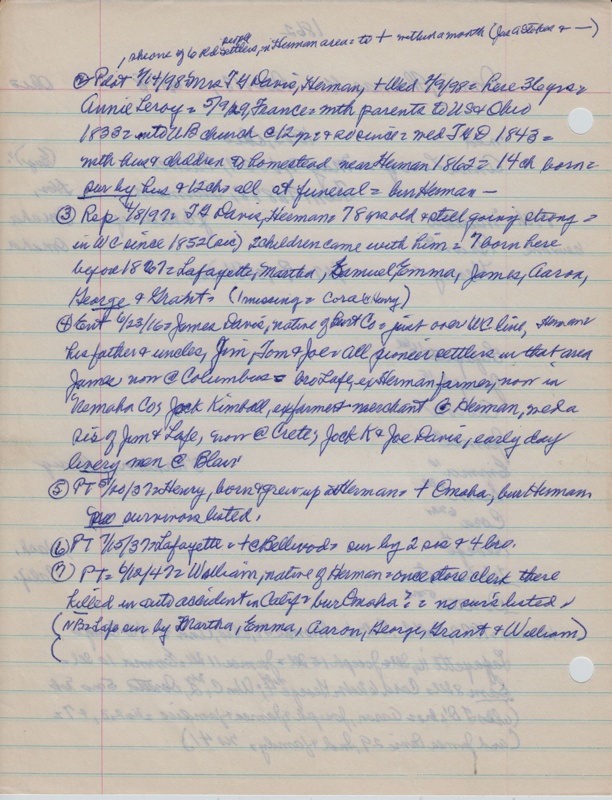 , she one of 6 old people
settlers, in Herman area = to + within a month (Jos A Stokes & —)
② Pilot 7/14/98 = Mrs T H Davis, Herman, + Wed 7/9/98 = here 36 yrs =
Annie Leroy = 5/9/29, France = mth parents to US & Ohio
1833 = into UB church @ 12 yrs & so since = wed T H D 1843 =
with hus & children to homestead near Herman 1862 = 14 ch born =
sur by hus & 12 chs all at funeral = bur Herman —
③ Rep 4/8/97 = T H Davis, Herman = 78 yrs old & still going strong =
in WC since 1852 (sic) 2 children come with him = 7 born here
by 1867 = Lafayette, Martha, Samuel, Emma, James, Aaron,
George & Grant = (1 missing = Cora & Henry)
④ Ent 6/23/16 = James Davis, native of Burt Co = just over WC line, Herman =
his father & uncles, Jim, Tom & Joe = all pioneer settlers in that area
James now @ Columbus = bro Lafe, ex Herman farmer, now in
Nemaha Co; Jack Kimball, ex farmer & merchant @ Herman, wed a
sis of Jim & Lafe, now @ Crete; Jack K & Joe Davis, early day
livery men @ Blair
⑤ PT 5/20/37 = Henry, born & grew up at Herman = + Omaha, bur Herman
no survivors listed.
⑥ PT 7/15/37 = Lafayette = + @ Bellwood = sur by 2 sis & 4 bro.
⑦ PT = 6/12/47 = William, native of Herman = once store clerk there
killed in auto accident in Calif = bur Omaha? = no surs listed
(NB = Lafe sur by Martha, Emma, Aaron, George, Grant & William)
(